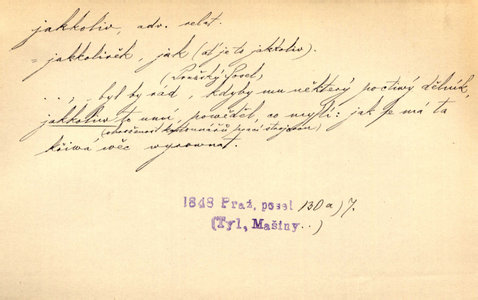 jakkoliv, adv. relat.
= jakkolivěk, jak (ať je to jakkoliv).
(Pražský Posel)
..., „byl by rád, kdyby mu některý poctivý dělník,
jakkoliv to umí, pověděl, co myslí: jak se má ta
(ohrožénost prací strojovou)
křivá věc vyrovnat.
1848 Praž. posel 130a)7.
(Tyl, Mašiny..)